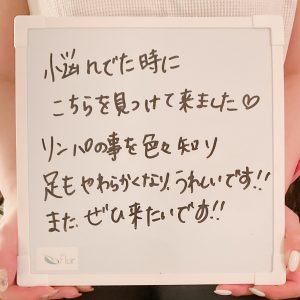 悩んでた時に
こちらを見つけて来ました♡
リンパの事を色々知り
足もやわらかくなり、うれしいです!!
また、ぜひ来たいです!!
Flair